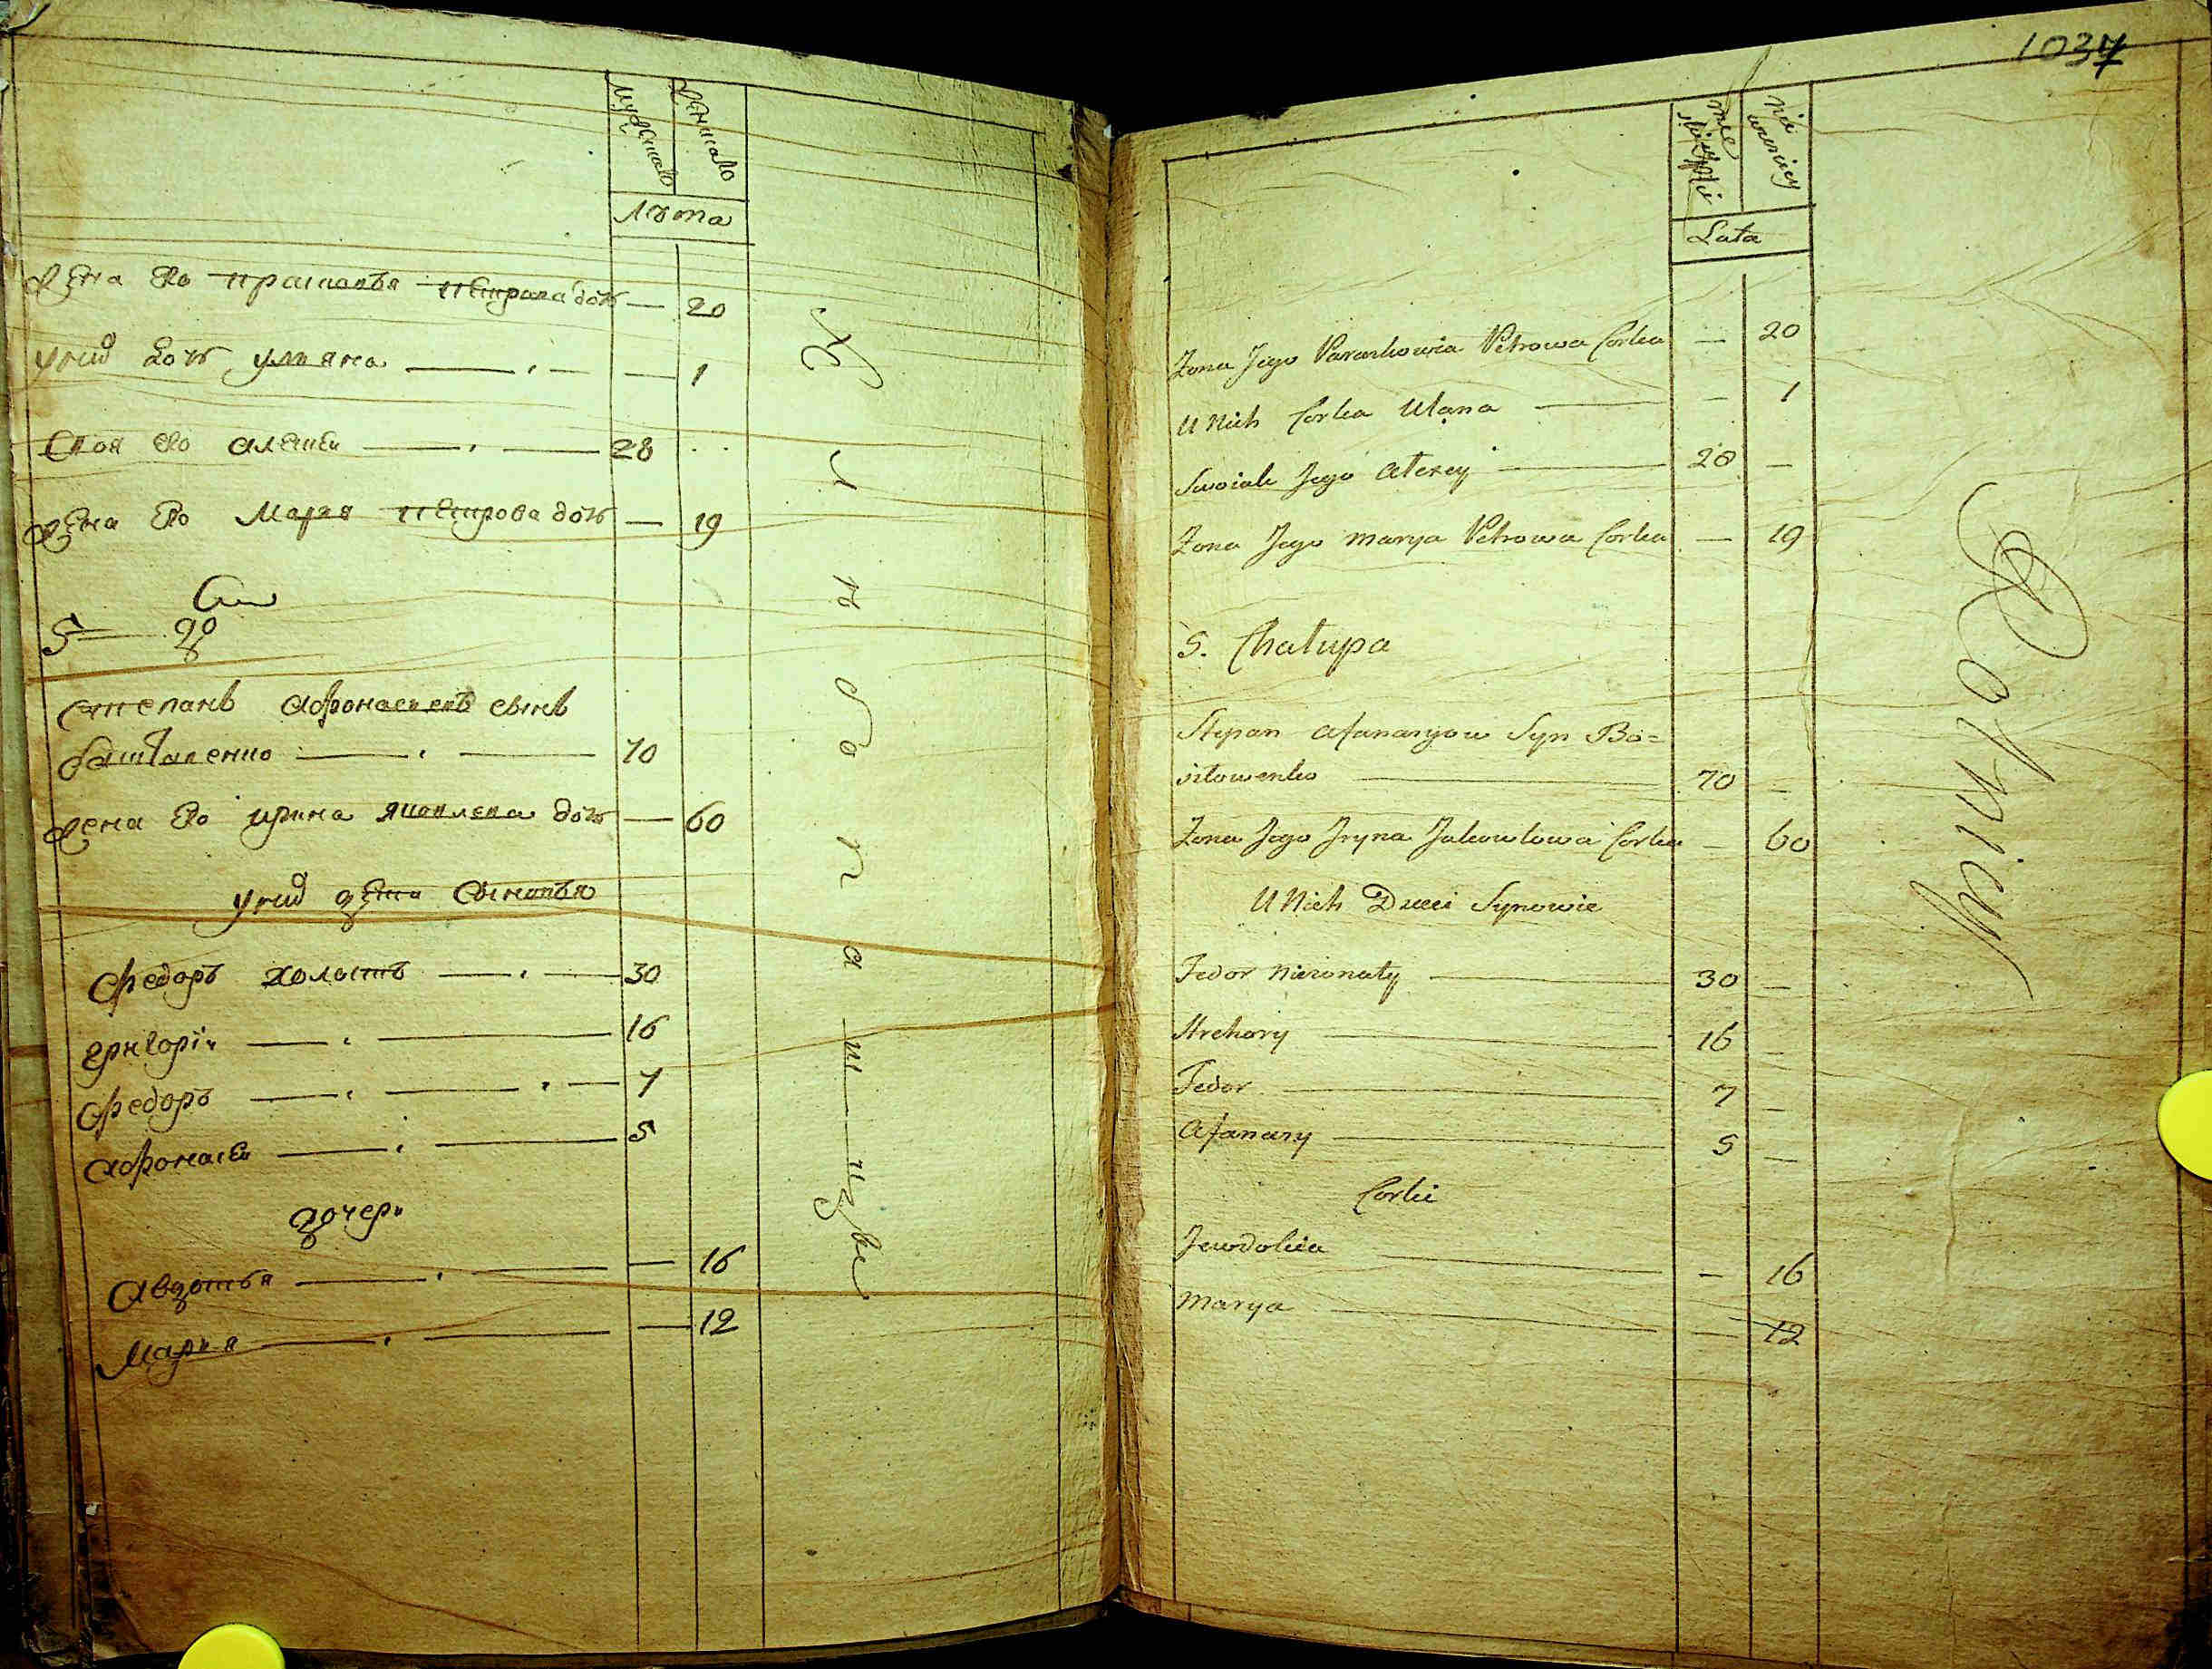 мужеска
женска
Лѣта
Жена его прасковья петрова дочь — 20
у них дочь ульяна — 1
Своя его алексеи — 28
Жена его Марья петрова дочь — 19
5
Степанъ афонасиевъ сынъ
жена его ирина яковлева дочь — 60
у них дети сыновья
Федоръ холостъ — 30
григорiи — 16
Федоръ — 7
афонасеи — 5
дочери
Авдотья — 16
Мария — 12
Хлѣбопашцы
1037
Lata
Zona Jego Paraskowia Petrowa Corka — 20
U Nich Corka Ulana — 1
Swoiak Jego Alexey 28 —
Zona Jego Marya Petrowa Corka — 19
5. Chałupa
Stepan Afanasyow Syn Bo=
70 —
Zona Jego Jryna Jakowlowa Corka — 60
U Nich Dzieci Synowie
Fedor Niezonaty 30 —
Hrehory 16 —
Fedor 7 —
Afanasy 5 —
Corki
Jewdokia — 16
Marya — 12
Rolnicy